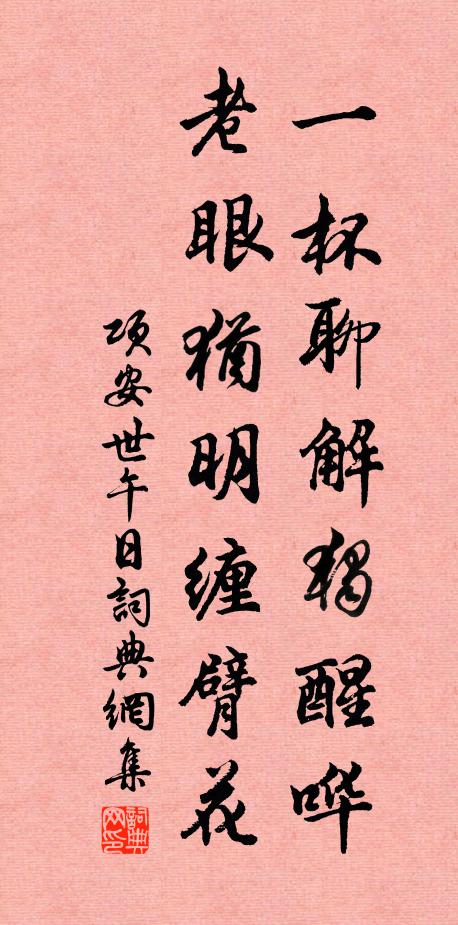 一杯聊解独醒哗
老眼犹明缠臂花
项安世午日詞典網集
詞典网印